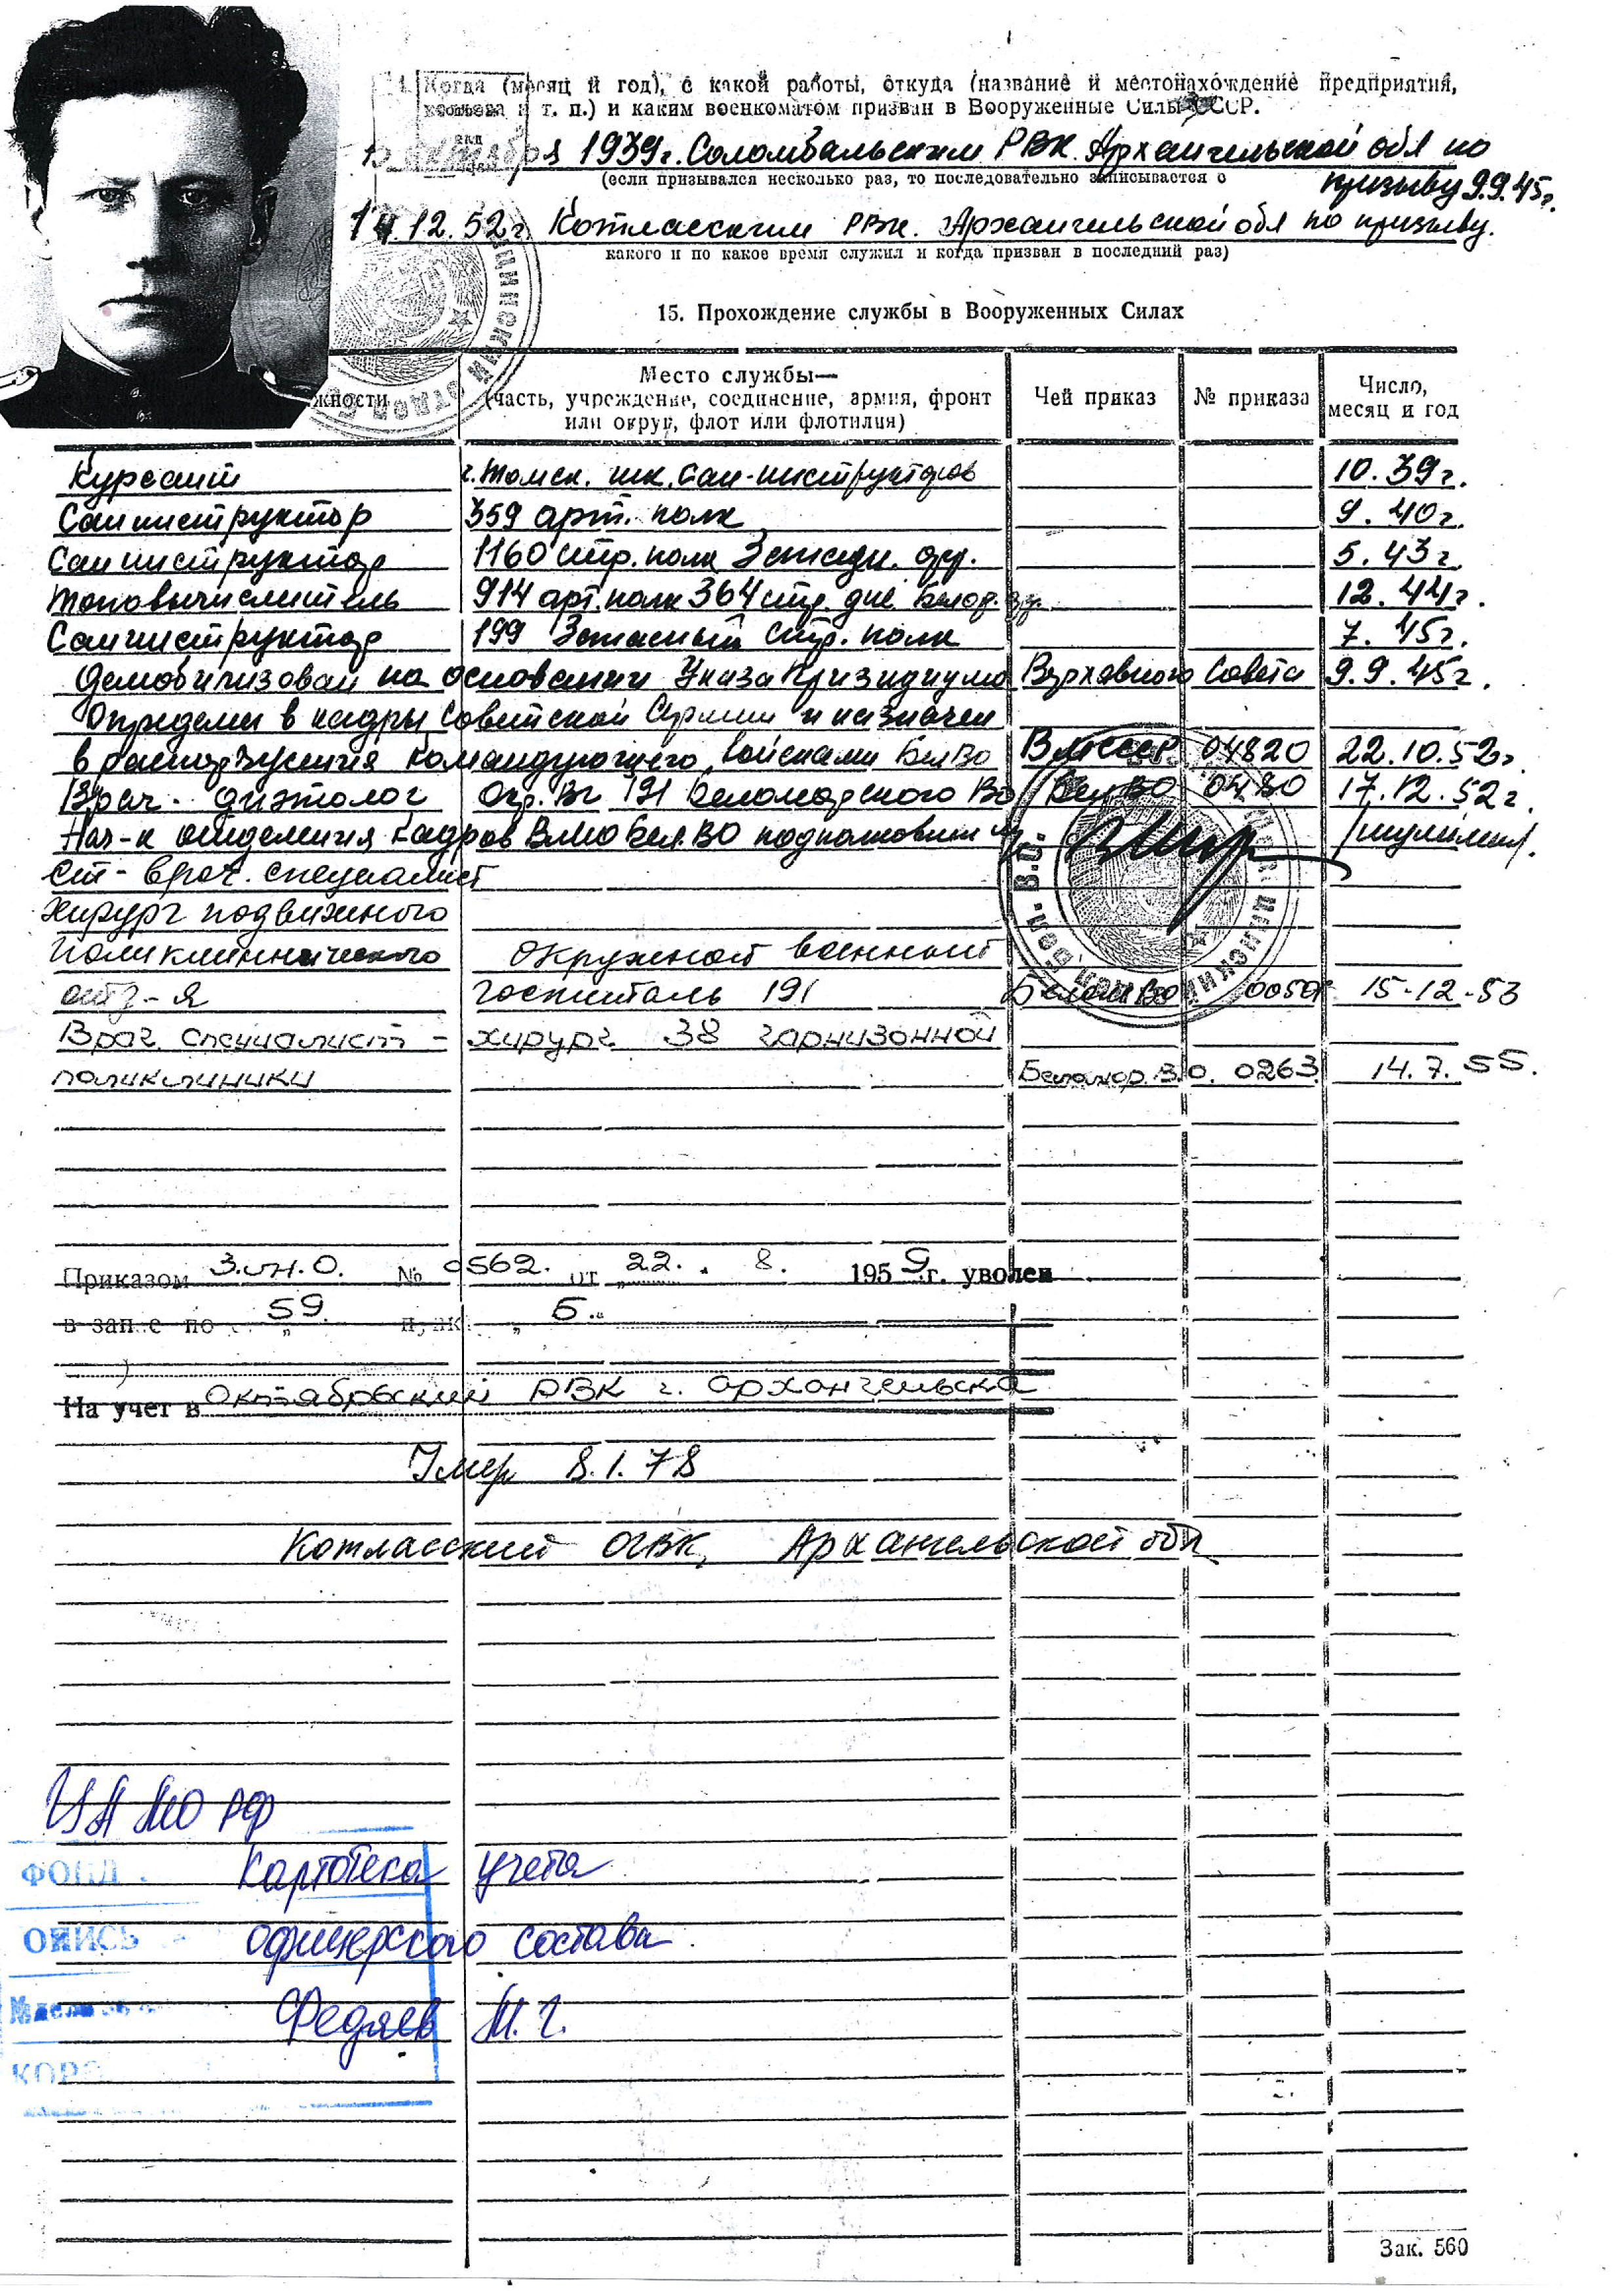 Когда (месяц и год), с какой работы, откуда (название и местонахождение предприятия,
и т. п.) и каким военкоматом призван в Вооруженные Силы СССР.
1939г. Соломбальским РВК. Архангельской обл по
(если призывался несколько раз, то последовательно записывается с призыву 9.9.45г.
14.12.52г. Котласским РВК. Архангельской обл по призыву.
какого и по какое время служил и когда призван в последний раз)
15. Прохождение службы в Вооруженных Силах
жности
Место службы—
(часть, учреждение, соединение, армия, фронт
или округ, флот или флотилия)
Чей приказ
№ приказа
Число,
месяц и год
Курсант г. Томск. шк. Сан-инструкторов 10.39г.
Санинструктор 359 арт. полк 9.40г.
Санинструктор 1160 стр. полк 5.43г.
Топовычислитель 914 арт. полк 364 стр. див. 12.44г.
Санинструктор 199 Запасный стр. полк 7.45г.
Демобилизован на основании Указа Президиума Верховного Совета 9.9.45г.
Определен в кадры Советской Армии и назначен
в командующего войсками БелВО 04820 22.10.52г.
Врач-диэтолог Окр. ВГ 191 Беломорского ВО БелВО 0480 17.12.52г.
Нач-к отделения кадров БелВО подполковник м/с
Ст-врач. специалист
Хирург подвижного
поликлинического Окружной военный
отд-я госпиталь 191 15-12-53
Врач. специалист - хирург 38 гарнизонной
поликлиники Беломор. В.О. 0263 14.7.55.
Приказом З.М.О. № 0562. от „22." 8. 1959г. уволен
в запас по 59. пункт „Б."
На учет в Октябрьский РВК г. Архангельска
Умер 8.1.78
Котласский ОГВК, Архангельской обл
ЦА МО РФ
ФОНД Картотека учета
ОПИСЬ офицерского состава
Федяев М.Г.
КОР
Зак. 560